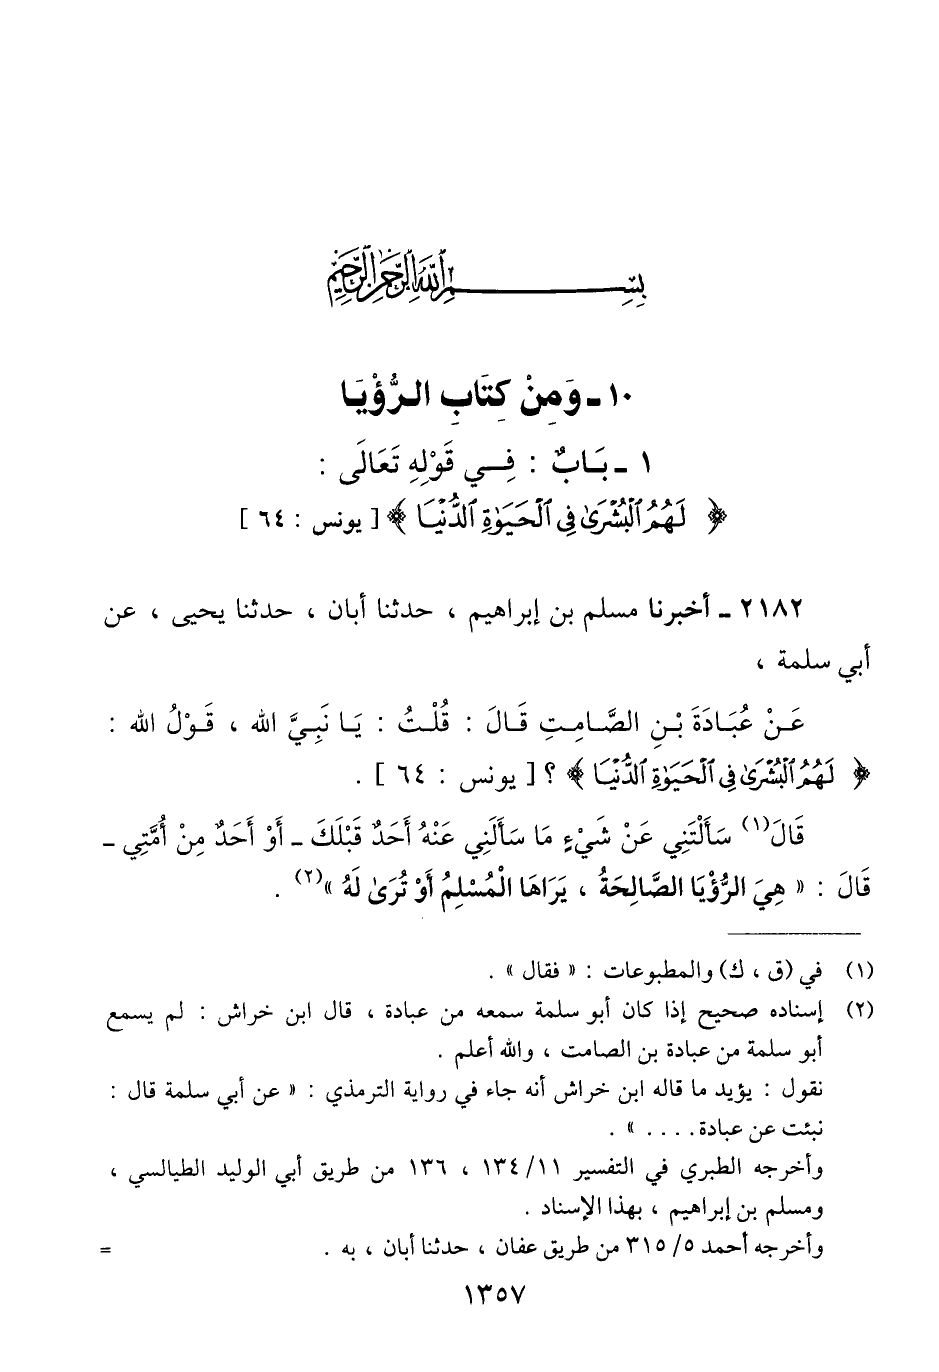 بِسْمِ اللَّهِ الرَّحْمَٰنِ الرَّحِيمِ
١٠ ـ وَمِنْ كِتَابِ الرُّؤْيَا
١ ـ بَابٌ : فِي قَوْلِهِ تَعَالَى :
﴿ لَهُمُ ٱلْبُشْرَىٰ فِى ٱلْحَيَوٰةِ ٱلدُّنْيَا ﴾ [ يونس : ٦٤ ]
٢١٨٢ ـ أخبرنا مسلم بن إبراهيم ، حدثنا أبان ، حدثنا يحيى ، عن
أبي سلمة ،
عَنْ عُبَادَةَ بْنِ الصَّامِتِ قَالَ : قُلْتُ : يَا نَبِيَّ الله ، قَوْلُ الله :
﴿ لَهُمُ ٱلْبُشْرَىٰ فِى ٱلْحَيَوٰةِ ٱلدُّنْيَا ﴾ ؟ [ يونس : ٦٤ ] .
قَالَ(١) سَأَلْتَنِي عَنْ شَيْءٍ مَا سَأَلَنِي عَنْهُ أَحَدٌ قَبْلَكَ ـ أَوْ أَحَدٌ مِنْ أُمَّتِي ـ
قَالَ : « هِيَ الرُّؤْيَا الصَّالِحَةُ ، يَرَاهَا الْمُسْلِمُ أَوْ تُرَىٰ لَهُ »(٢) .
(١) في (ق ، ك) والمطبوعات : « فقال » .
(٢) إسناده صحيح إذا كان أبو سلمة سمعه من عبادة ، قال ابن خراش : لم يسمع
أبو سلمة من عبادة بن الصامت ، والله أعلم .
نقول : يؤيد ما قاله ابن خراش أنه جاء في رواية الترمذي : « عن أبي سلمة قال :
نبئت عن عبادة. . . . » .
وأخرجه الطبري في التفسير ١١/ ١٣٤ ، ١٣٦ من طريق أبي الوليد الطيالسي ،
ومسلم بن إبراهيم ، بهذا الإسناد .
وأخرجه أحمد ٥/ ٣١٥ من طريق عفان ، حدثنا أبان ، به . =
١٣٥٧